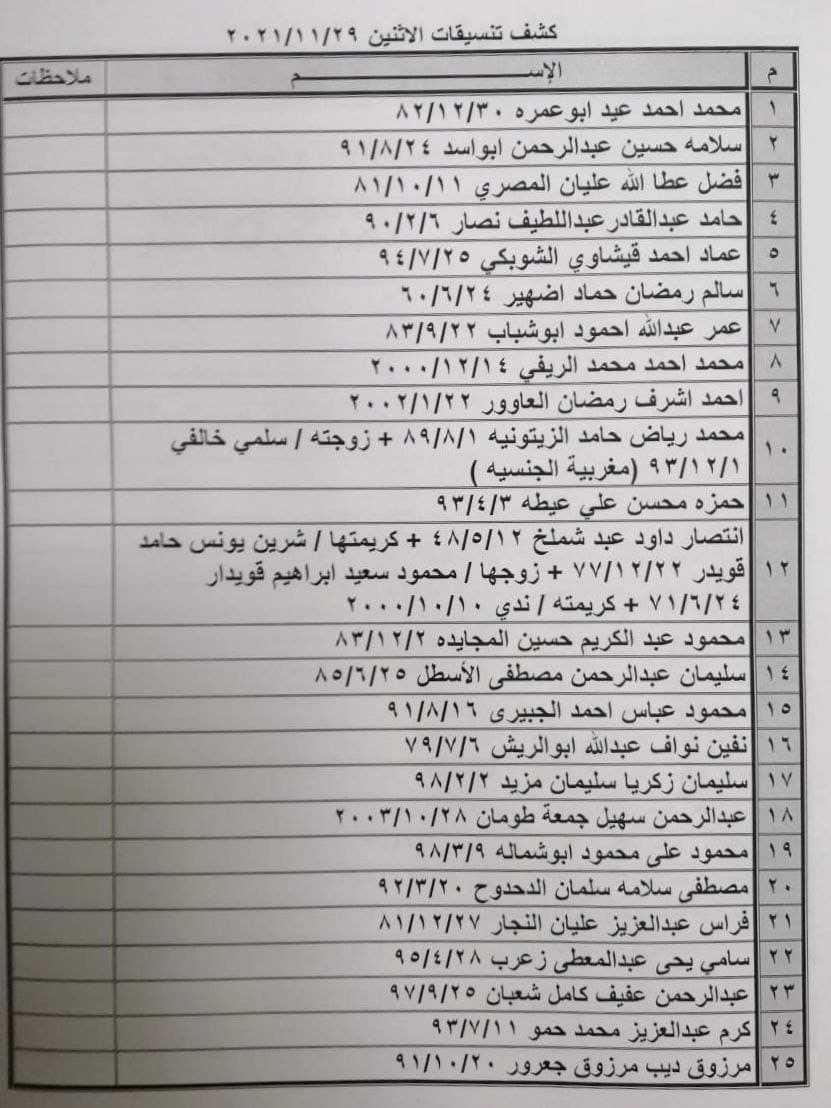 كشف تنسيقات الاثنين ٢٠٢١/١١/٢٩
م الإســـــــــم ملاحظات
١ محمد احمد عيد ابوعمره ٨٢/١٢/٣٠
٢ سلامه حسين عبدالرحمن ابواسد ٩١/٨/٢٤
٣ فضل عطا الله عليان المصري ٨١/١٠/١١
٤ حامد عبدالقادرعبداللطيف نصار ٩٠/٢/٦
٥ عماد احمد قيشاوي الشوبكي ٩٤/٧/٢٥
٦ سالم رمضان حماد اضهير ٦٠/٦/٢٤
٧ عمر عبدالله احمود ابوشباب ٨٣/٩/٢٢
٨ محمد احمد محمد الريفي ٢٠٠٠/١٢/١٤
٩ احمد اشرف رمضان العاوور ٢٠٠٢/١/٢٢
١٠ محمد رياض حامد الزيتونيه ٨٩/٨/١ + زوجته / سلمي خالفي
٩٣/١٢/١ (مغربية الجنسيه )
١١ حمزه محسن علي عيطه ٩٣/٤/٣
انتصار داود عبد شملخ ٤٨/٥/١٢ + كريمتها / شرين يونس حامد
١٢ قويدر ٧٧/١٢/٢٢ + زوجها / محمود سعيد ابراهيم قويدار
٧١/٦/٢٤ + كريمته / ندي ٢٠٠٠/١٠/١٠
١٣ محمود عبد الكريم حسين المجايده ٨٣/١٢/٢
١٤ سليمان عبدالرحمن مصطفى الأسطل ٨٥/٦/٢٥
١٥ محمود عباس احمد الجبيرى ٩١/٨/١٦
١٦ نفين نواف عبدالله ابوالريش ٧٩/٧/٦
١٧ سليمان زكريا سليمان مزيد ٩٨/٢/٢
١٨ عبدالرحمن سهيل جمعة طومان ٢٠٠٣/١٠/٢٨
١٩ محمود على محمود ابوشماله ٩٨/٣/٩
٢٠ مصطفى سلامه سلمان الدحدوح ٩٢/٣/٢٠
٢١ فراس عبدالعزيز عليان النجار ٨١/١٢/٢٧
٢٢ سامي يحى عبدالمعطى زعرب ٩٥/٤/٢٨
٢٣ عبدالرحمن عفيف كامل شعبان ٩٧/٩/٢٥
٢٤ كرم عبدالعزيز محمد حمو ٩٣/٧/١١
٢٥ مرزوق ديب مرزوق جعرور ٩١/١٠/٢٠